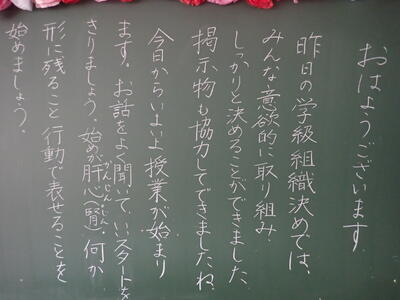 おはようございます。
昨日の学級組織決めでは、
みんな意欲的に取り組み、
しっかりと決めることができました。
掲示物も協力してできましたね。
今日からいよいよ授業が始まり
ます。お話をよく聞いて、いいスタートを
きりましょう。始めが肝心(腎)。何か
かんじんじん
形に残ること、行動で表せることを
始めましょう。